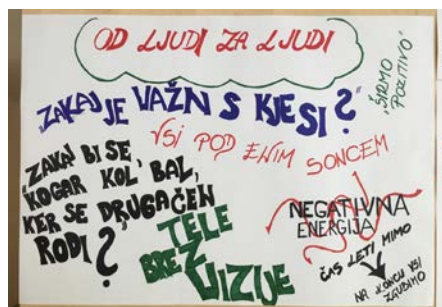 OD LJUDI ZA LJUDI
"ŠIRMO
POZITIVO"
"ZAKAJ JE VAŽN S KJE SI?"
VSI POD ENIM SONCEM
"ZAKAJ BI SE
KOGAR KOL' BAL,
KER SE DRUGAČEN
RODI?
TELE
BREZ
VIZIJE
NEGATIVNA
ENERGIJA
ČAS LETI MIMO
NA KONCU VSI
ZGUBIMO